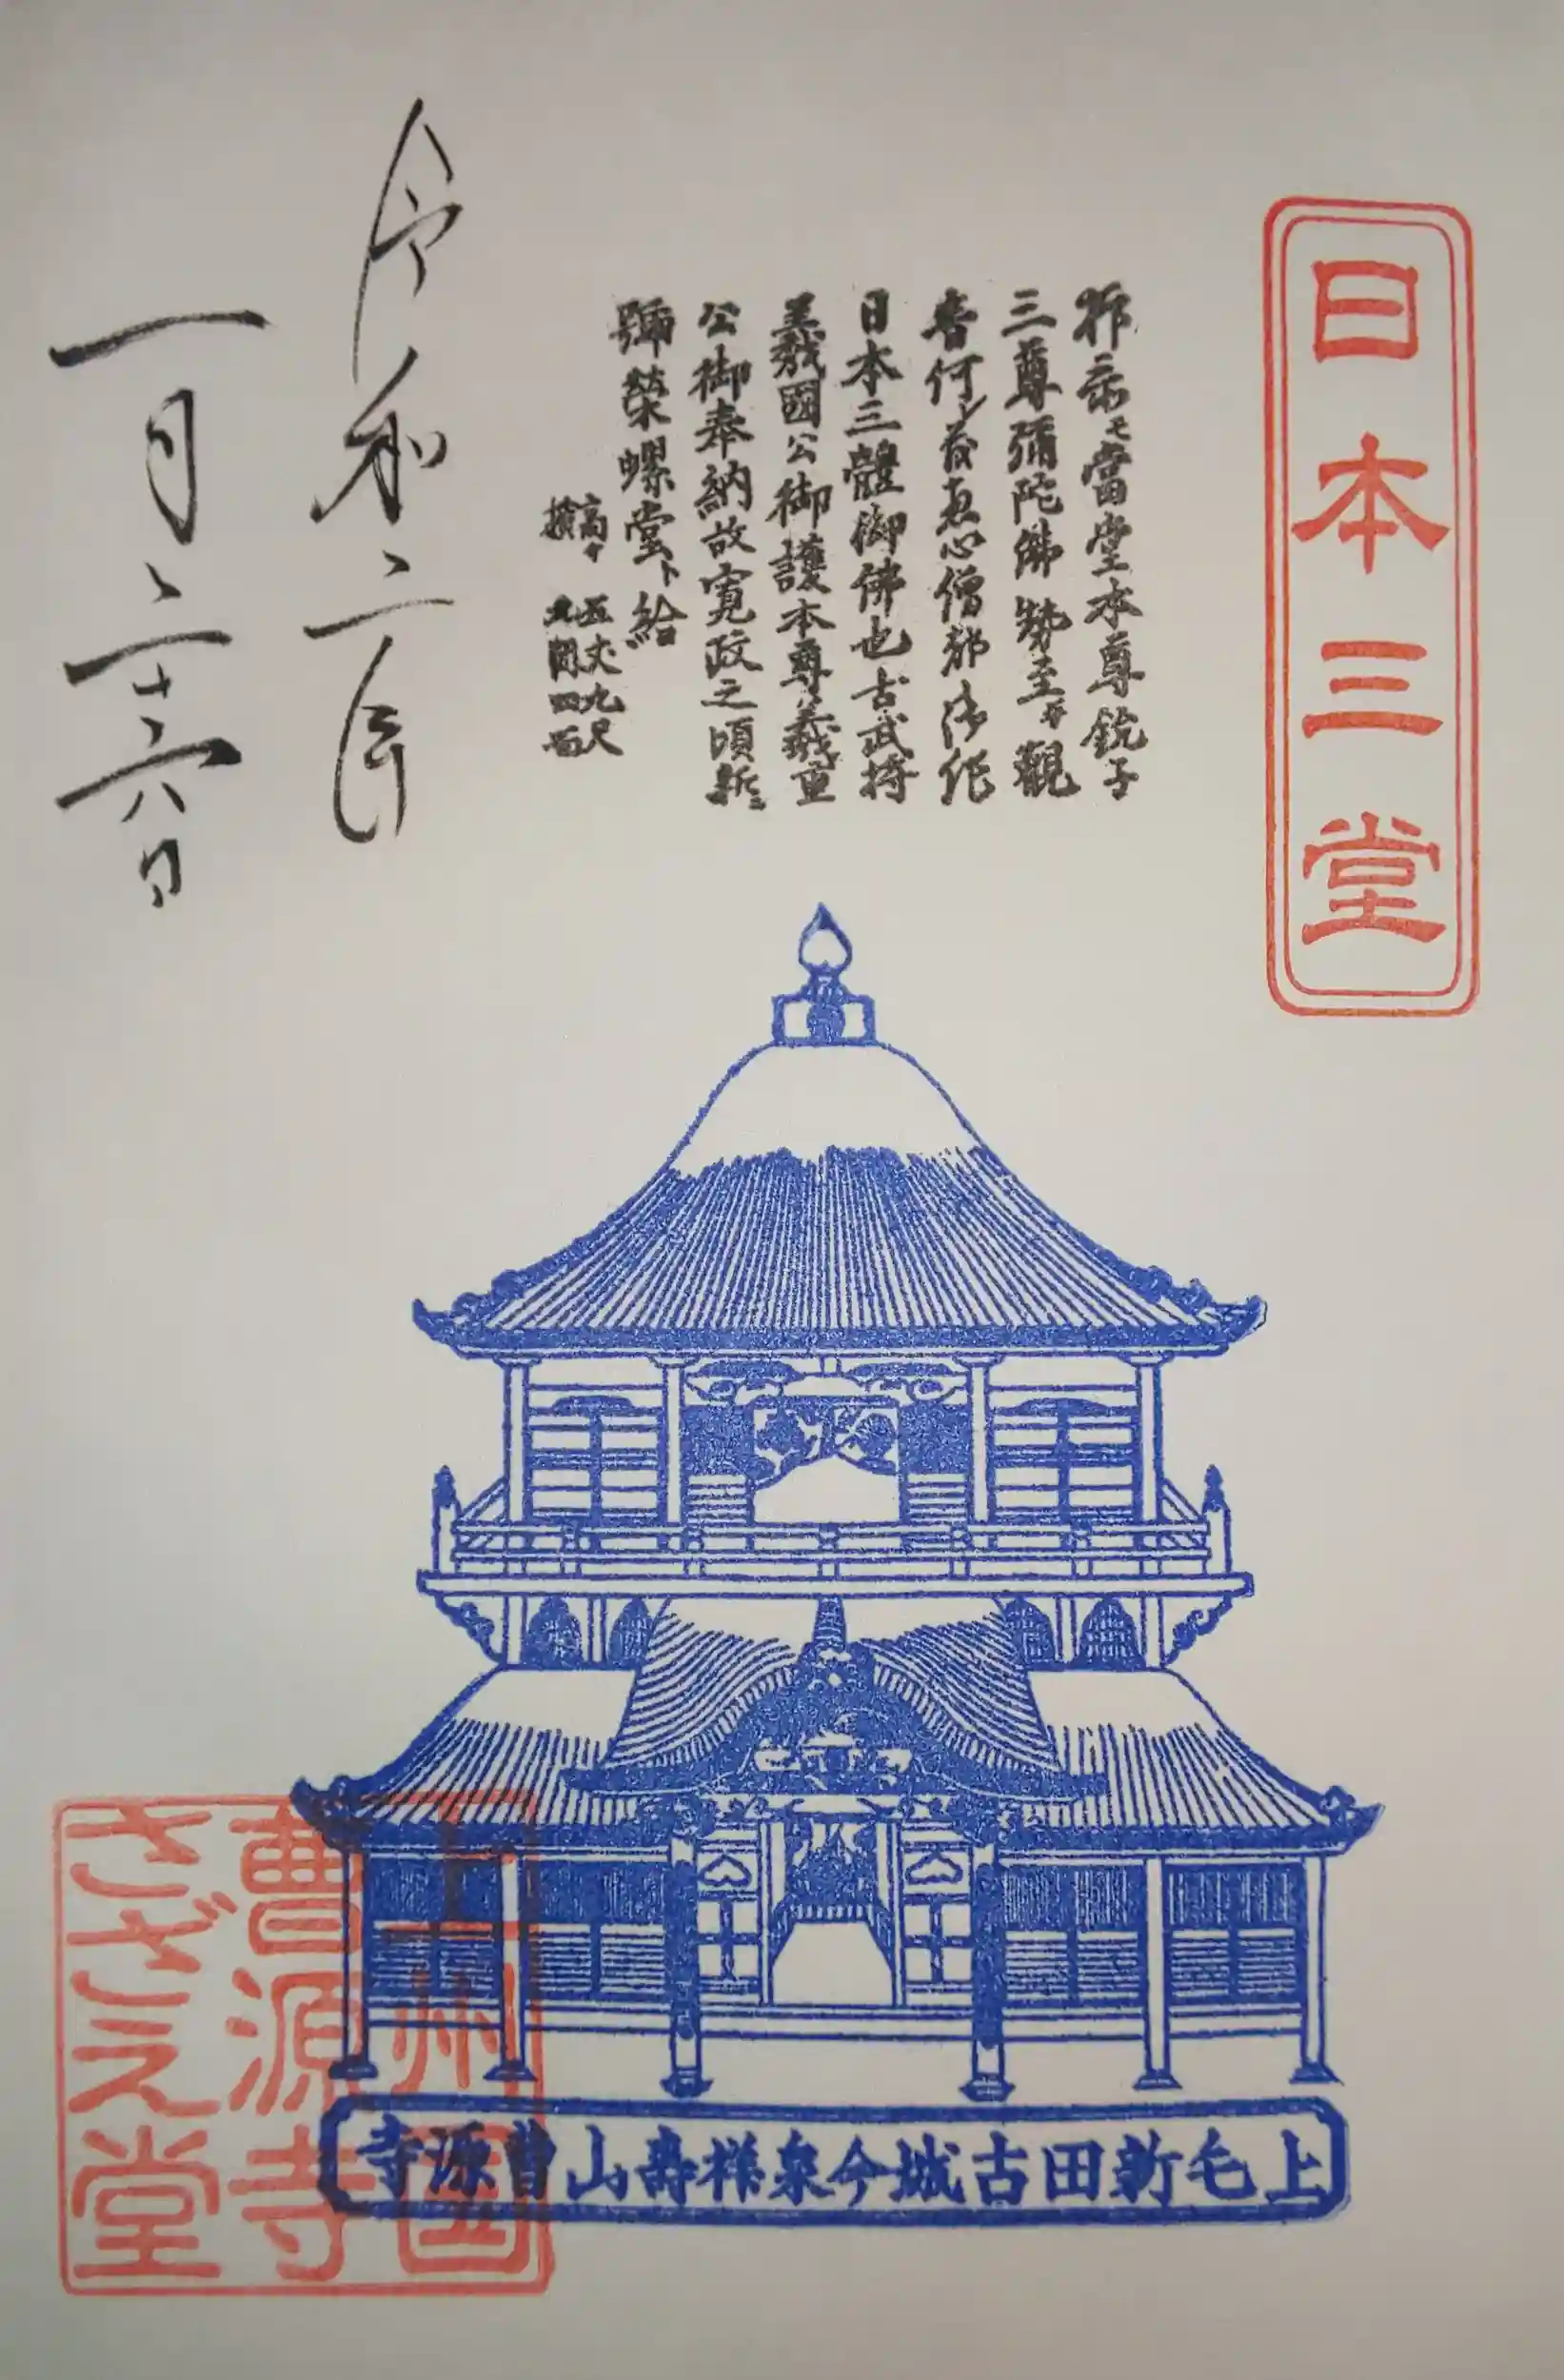 日本三堂
抑示モ當堂本尊鋭子
三尊彌陀佛勢至并觀
音何レ茂恵心僧都御作
日本三體御佛也古武将
義國公御護本尊義重
公御奉納故寛政之頃新ニ
號榮螺堂ト給
高サ 五丈九尺
横 九間四面
令和二年
一月二十六日
上毛新田古城今泉祥壽山曹源寺
上州国
曹源寺
さざえ堂